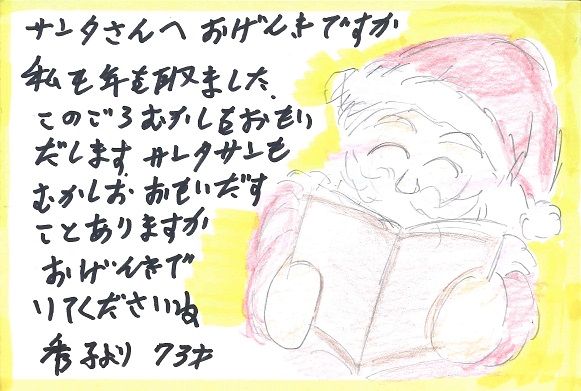 サンタさんへ おげんきですか
私も年を取ました
このごろむかしをおもい
だします サンタサンも
むかしお おもいだす
ことありますか
おげんきで
いてくださいね
秀子より 73才